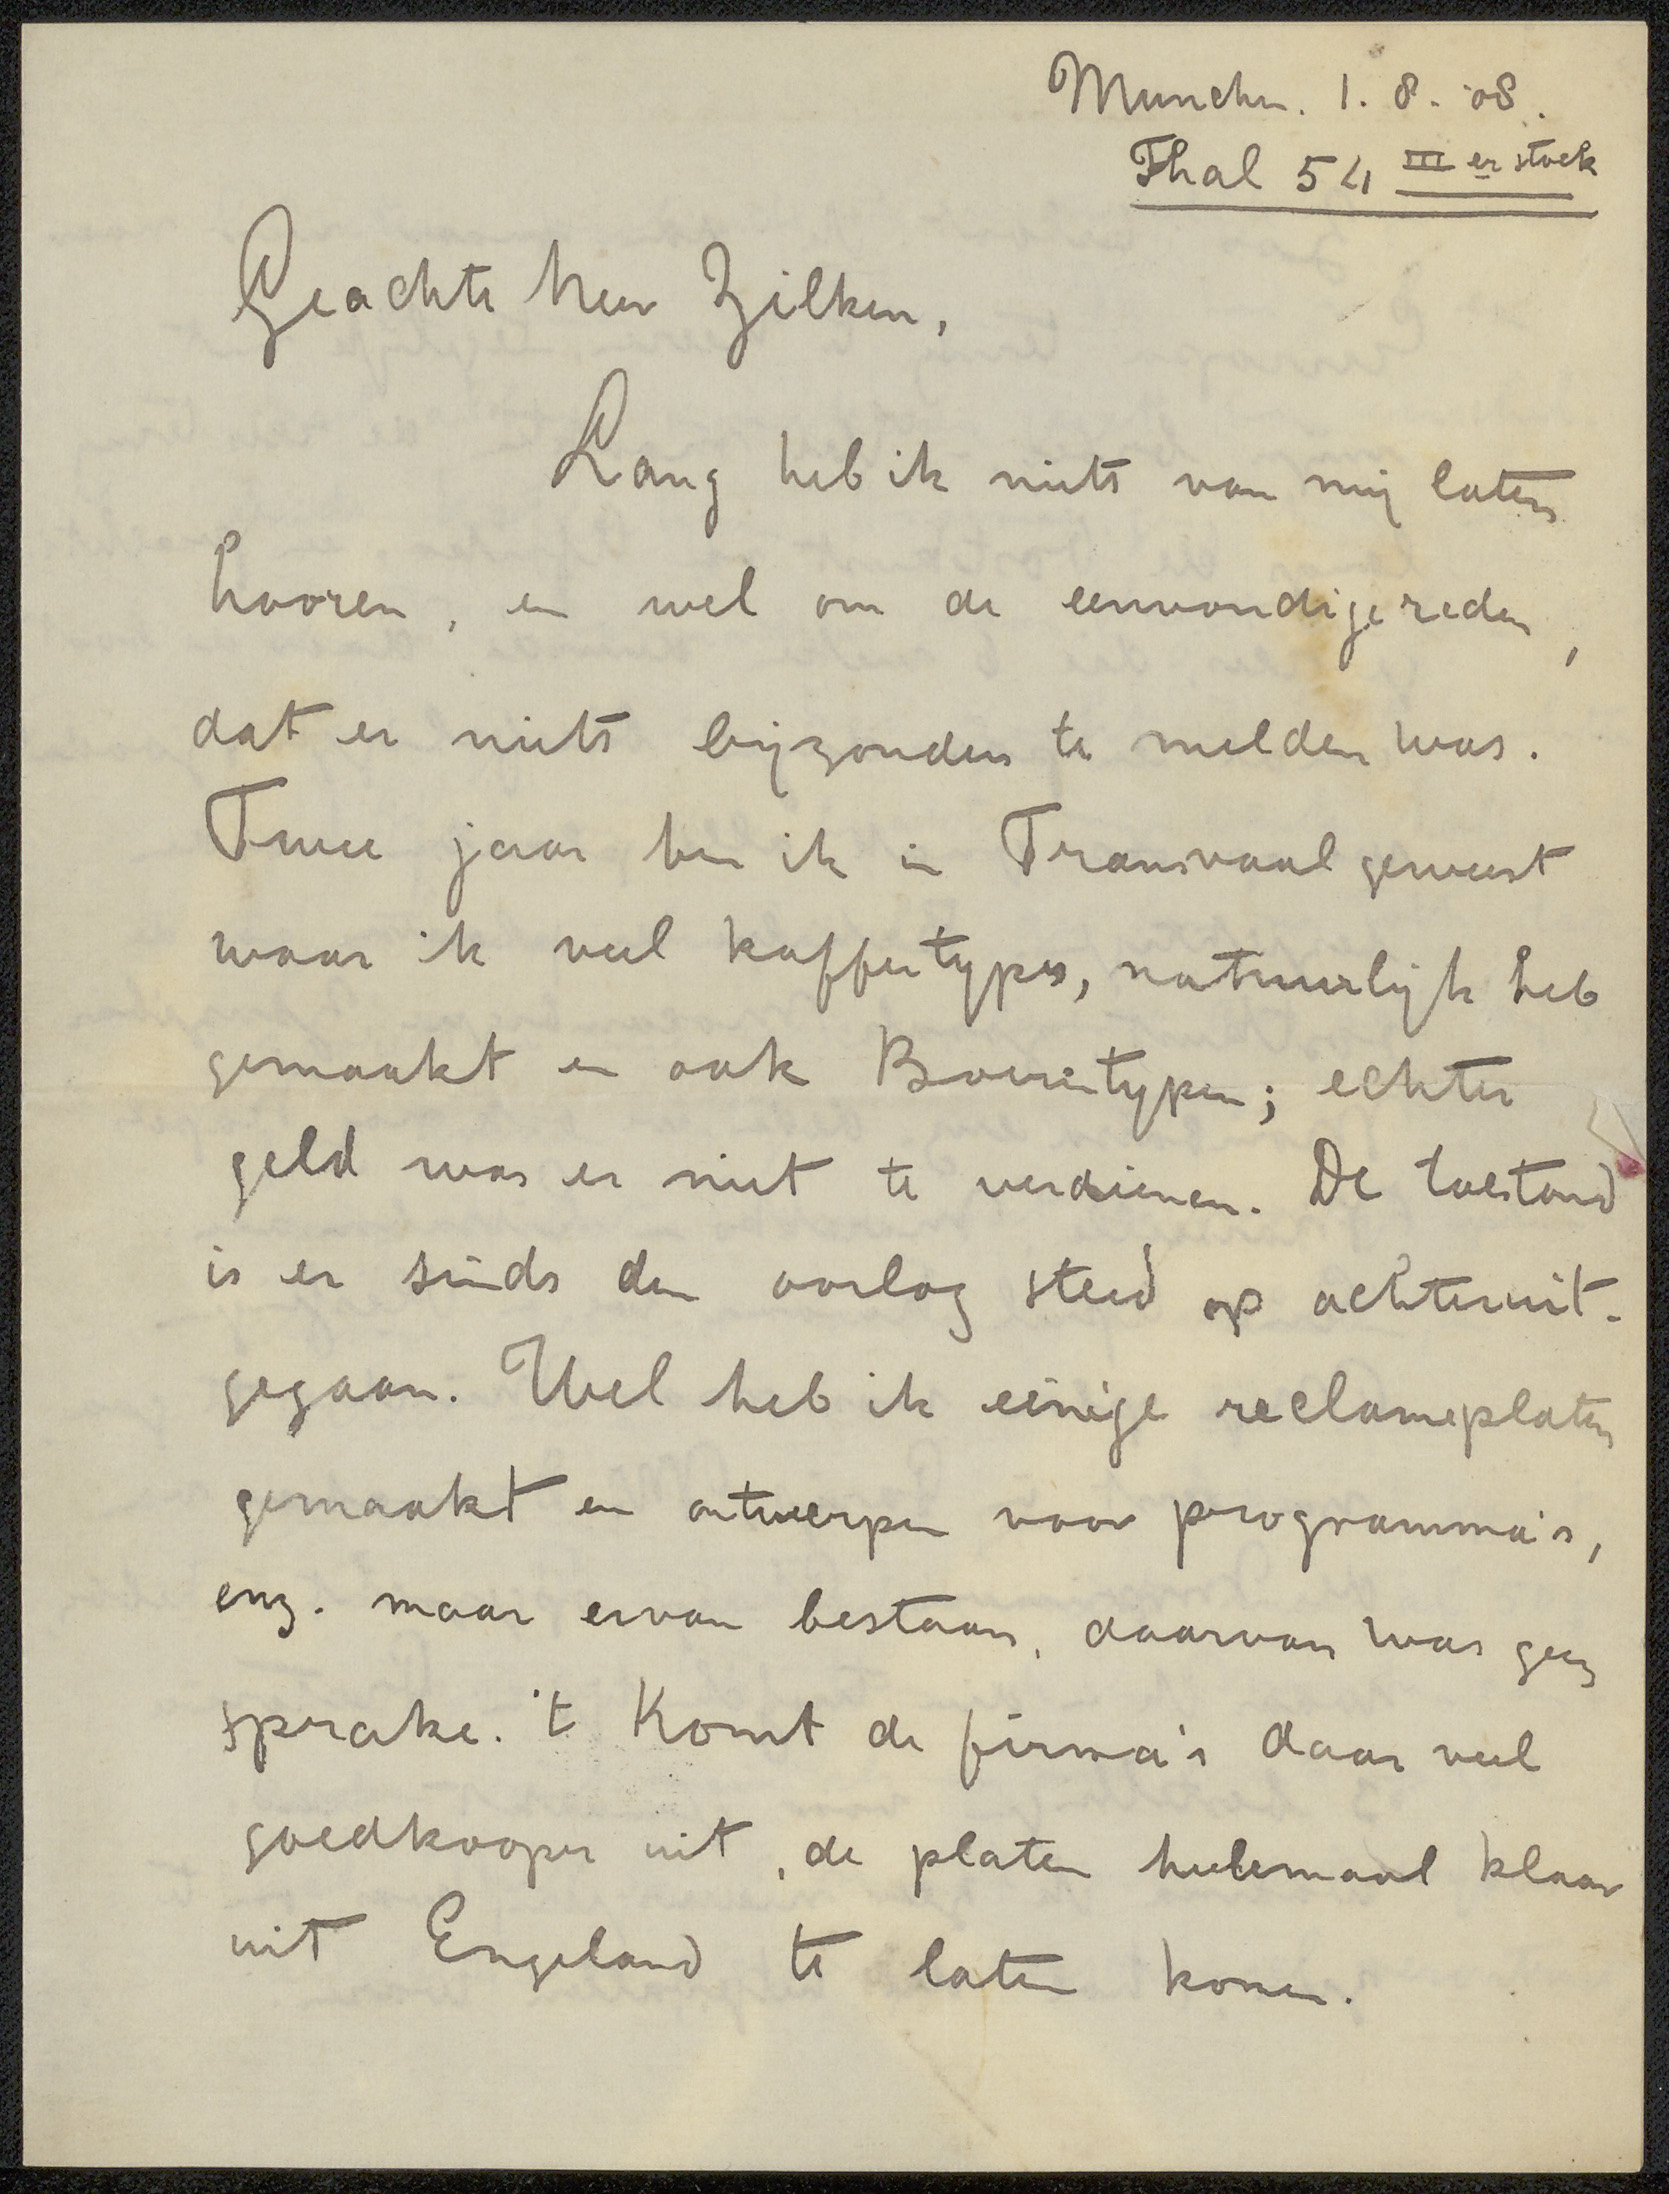 Munchen. 1. 8. '08.
Thal 54 III er stock
Geachte heer Zilken,
Lang heb ik niets van mij laten
hooren, en wel om de eenvoudige reden,
dat er niets bijzonders te melden was.
Twee jaar ben ik in Transvaal geweest
waar ik veel kaffertypes, natuurlijk heb
gemaakt en ook Boerentypen; echter
geld was er niet te verdienen. De toestand
is er sinds den oorlog steed op achteruit-
gegaan. Wel heb ik eenige reclameplaten
gemaakt en ontwerpen voor programma's,
enz. maar ervan bestaan, daarvan was geen
sprake. 't Komt de firma's daar veel
goedkooper uit, de platen heelemaal klaar
uit Engeland te laten komen.